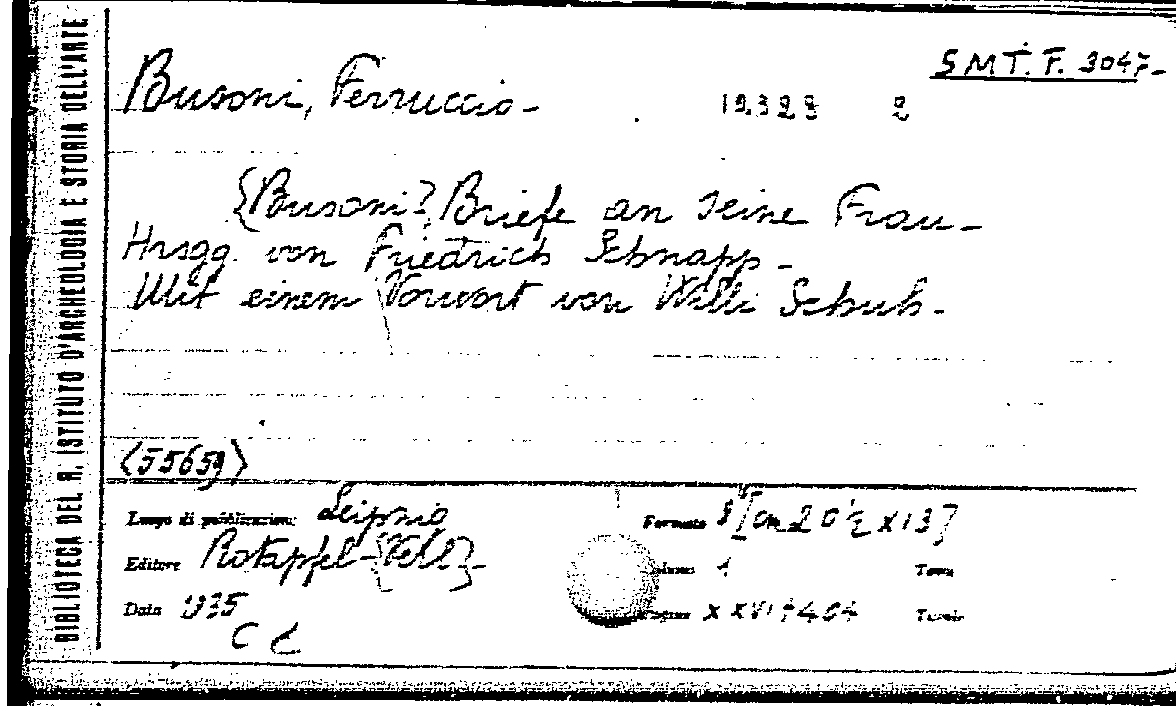 BIBLIOTECA DEL R. ISTITUTO D'ARCHEOLOGIA E STORIA DELL'ARTE
S.M.T. F. 3047-
Busoni, Ferruccio-
19328 2
[Busoni], Briefe an seine Frau-
Hrsgg. von Friedrich Schnapp-
Mit einem Vorwort von Willi Schuh-
<55659>
Luogo di pubblicazione: Leipzig
Formato 8°[cm 20½ x 13]
Editore Rotapfel-
Volumi 1
Tomi
Data 1935
Pagine XXVI+404
Tavole